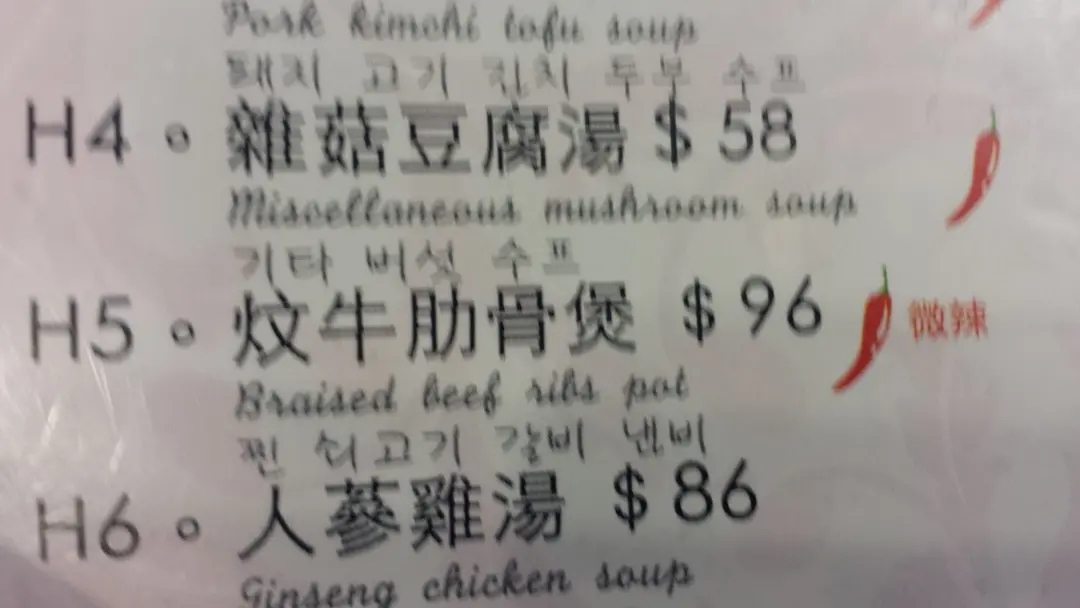 Pork kimchi tofu soup
돼지 고기 김치 두부 수프
H4。雜菇豆腐湯 $58
Miscellaneous mushroom soup
기타 버섯 수프
H5。炆牛肋骨煲 $96 微辣
Braised beef ribs pot
찐 쇠고기 갈비 냄비
H6。人蔘雞湯 $86
Ginseng chicken soup